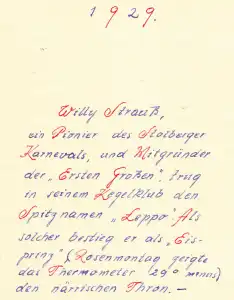 1929.
Willy Strauß,
ein Pionier des Stolberger
Karnevals, und Mitgründer
der „Ersten Großen“, trug
in seinem Kegelklub den
Spitznamen „Leppo“. Als
solcher bestieg er als „Eis-
prinz“ (Rosenmontag zeigte
das Thermometer (29° minus)
den närrischen Thron. —